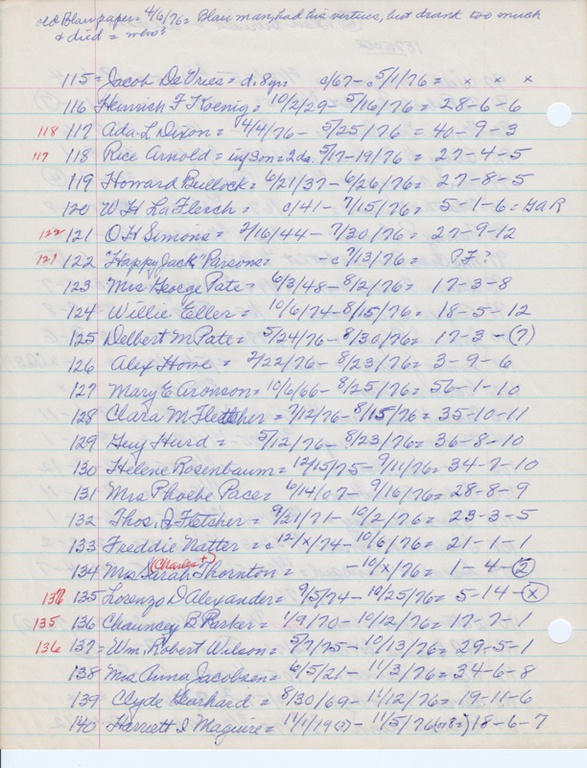 old Blair paper = 4/6/76 = Blair man, had his virtues, but drank too much
& died = who?
115 = Jacob DeVries = d. 8 yrs c/67 - c 5/1/76 = x x x
116 Heinrich F Koenig = 10/2/29 - 5/16/76 = 28-6-6
118 117 Ada L Dixon = 4/4/76 - 5/25/76 = 40-9-3
117 118 Rice Arnold = inf son = 2 da. 5/17-19/76 = 27-4-5
119 Howard Bullock = 6/21/37 - 6/26/76 = 27-8-5
120 W H LaFlesch = c/41 - 7/15/76 = 5-1-6 = GAR
122 121 O H Simons = 2/16/44 - 7/30/76 = 27-9-12
121 122 "Happy Jack" Parsons = - c 7/13/76 = P.F?
123 Mrs George Pate = 6/3/48 - 8/2/76 = 17-3-8
124 Willie Eller = 10/6/74 - 8/15/76 = 18-5-12
125 Delbert M Pate = 5/24/76 - 8/30/76 = 17-3-(7)
126 Alex Home = 2/22/76 - 8/23/76 = 3-9-6
127 Mary E Aronson = 10/6/66 - 8/25/76 = 56-1-10
128 Clara M Fletcher = 7/12/76 - 8/15/76 = 35-10-11
129 Guy Hurd = 5/12/76 - 8/23/76 = 36-8-10
130 Helene Rosenbaum = 12/15/75 - 9/11/76 = 34-7-10
131 Mrs Phoebe Pace = 6/14/07 - 9/16/76 = 28-8-9
132 Thos. J Fletcher = 9/21/71 - 10/2/76 = 23-3-5
133 Freddie Natter = c 12/x/74 - 10/6/76 = 21-1-1
134 Mrs Sarah (Charles +) Thornton = - 10/x/76 = 1-4-(2)
137 135 Lorenzo D Alexander = 9/5/74 - 10/25/76 = 5-14-(x)
135 136 Chauncey B Parker = 1/9/70 - 10/12/76 = 17-7-1
136 137 = Wm. Robert Wilson = 5/7/75 - 10/13/76 = 29-5-1
138 Mrs Anna Jacobsen = 6/5/21 - 11/3/76 = 34-6-8
139 Clyde Gearhard = 8/30/69 - 11/12/76 = 19-11-6
140 Harriett I Maguire = 11/1/19(?) - 11/5/76 18-6-7